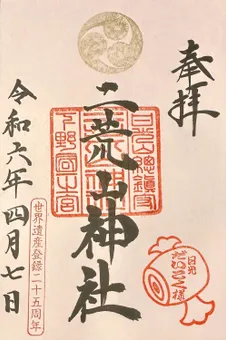 奉拝
二荒山神社
日光山總鎮守
下野國一之宮
日光
だいこく様
令和六年四月七日
世界遺産登録二十五周年